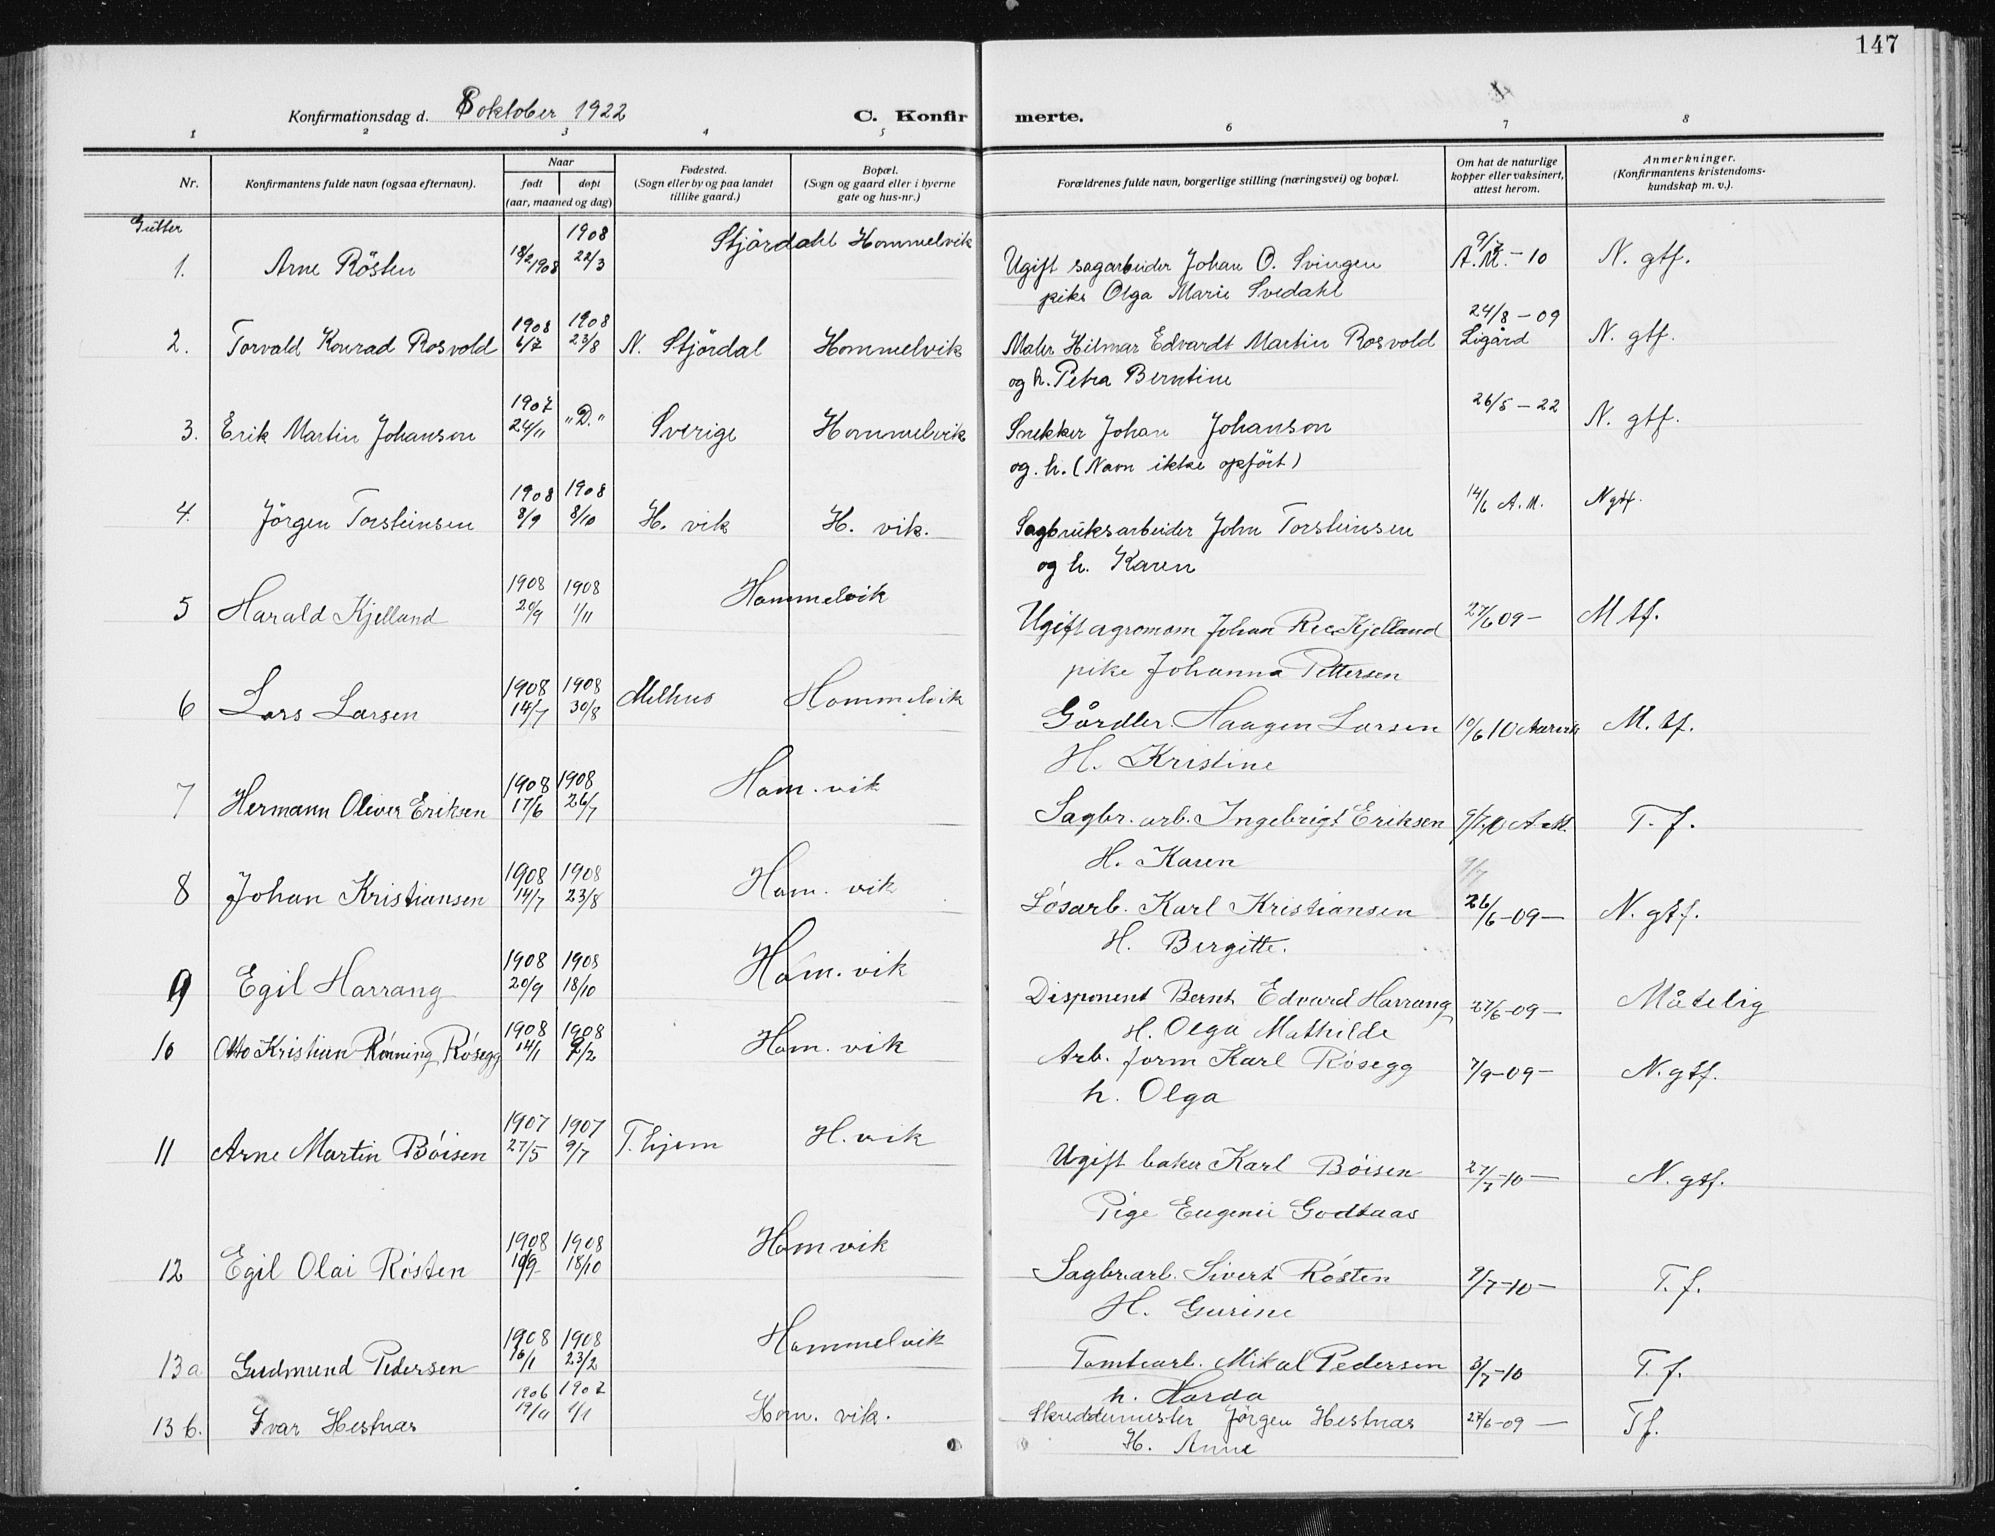 147
Konfirmationsdag d. 8 oktober 1922
C. Konfirmerte.
1 2 3 4 5 6 7 8
Nr.
Konfirmantens fulde navn (ogsaa efternavn).
Naar
født døpt
(aar, maaned og dag)
Fødested.
(Sogn eller by og paa landet
tillike gaard.)
Bopæl.
(Sogn og gaard eller i byerne
gate og hus-nr.)
Forældrenes fulde navn, borgerlige stilling (næringsvei) og bopæl.
Om hat de naturlige
kopper eller vaksinert,
attest herom.
Anmerkninger.
(Konfirmantens kristendoms-
kundskap m. v.).
Gutter
1. Arne Rösten 18/2 1908 1908 22/3 Stjördahl Hommelvik Ugift sagarbeider Johan O. Svingen 9/7 A.M. - 10 N. gtf.
pike Olga Marie Svedahl
2. Torvald Konrad Rosvold 1908 6/7 1908 23/8 N. Stjördal Hommelvik Maler Hilmar Edvardt Martin Rosvold 24/8 - 09 Ligård N. gtf.
og h. Petra Berntine
3. Erik Martin Johanson 1907 24/11 "D." Sverige Hommelvik Snekker Johan Johanson 26/5 - 22 N. gtf.
og. h. (Navn ikke opfört)
4. Jörgen Torsteinsen 1908 8/9 1908 8/10 H. vik H. vik. Sagbruksarbeider John Torsteinsen 14/6 A. M. N gtf.
og h. Karen
5 Harald Kjelland 1908 20/9 1908 1/11 Hommelvik Ugift agronom Johan Ree Kjelland 27/6 09 - M tf.
pike Johanna Pettersen
6 Lars Larsen 1908 14/7 1908 30/8 Melhus Hommelvik Gårdbr. Haagen Larsen 10/6 10 M. tf.
H. Kristine
7 Hermann Oliver Eriksen 1908 17/6 1908 26/7 Hom. vik Sagbr. arb. Ingebrigt Eriksen 9/7 10 A.M. T. f.
H. Karen
9/7
8 Johan Kristiansen 1908 14/7 1908 23/8 Hom. vik Løsarb. Karl Kristiansen 26/6 - 09 - N. gtf.
H. Bergitte.
9 Egil Harrang 1908 20/9 1908 18/10 Hom. vik Disponent Bernt Edvard Harrang 27/6 - 09 - Måtelig
H. Olga Mathilde
10 Otto Kristian Rønning Røsegg 1908 14/1 1908 2/2 Hom. vik Arb. form Karl Røsegg 7/9 - 09 - N. gtf.
h. Olga
11 Arne Martin Bøisen 1907 27/5 1907 9/7 T. hjem H. vik Ugift baker Karl Bøisen 27/7 - 10 - N. gtf.
Pige Eugenie Godtaas
12 Egil Olai Røsten 1908 10/9 1908 18/10 Hom vik Sagbr. arb. Sivert Røsten 9/7 - 10 - T. f.
H. Gurine
13 a Gudmund Pedersen 1908 16/1 1908 23/2 Hommelvik Tomtearb. Mikal Pedersen 3/7 - 10 T. f.
h. Harda
13 b. Ivar Hestnas 1906 19/11 1907 1/1 Hom. vik. Skreddermester Jörgen Hestnas 27/6 - 09 - T f.
H. Anne